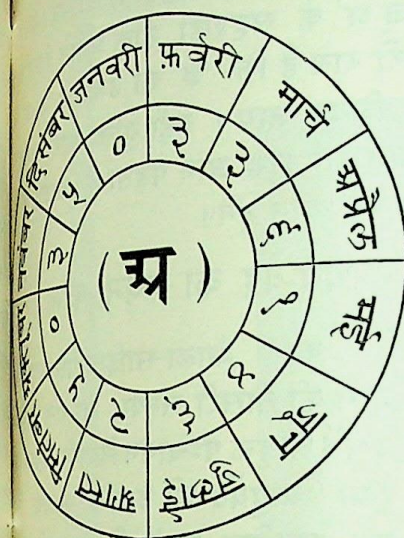 जनवरी
०
फ़र्वरी
३
मार्च
३
अप्रैल
६
मई
१
जून
४
जुलाई
६
अगस्त
२
सितंबर
५
अक्तूबर
०
नवंबर
३
दिसंबर
५
(अ)